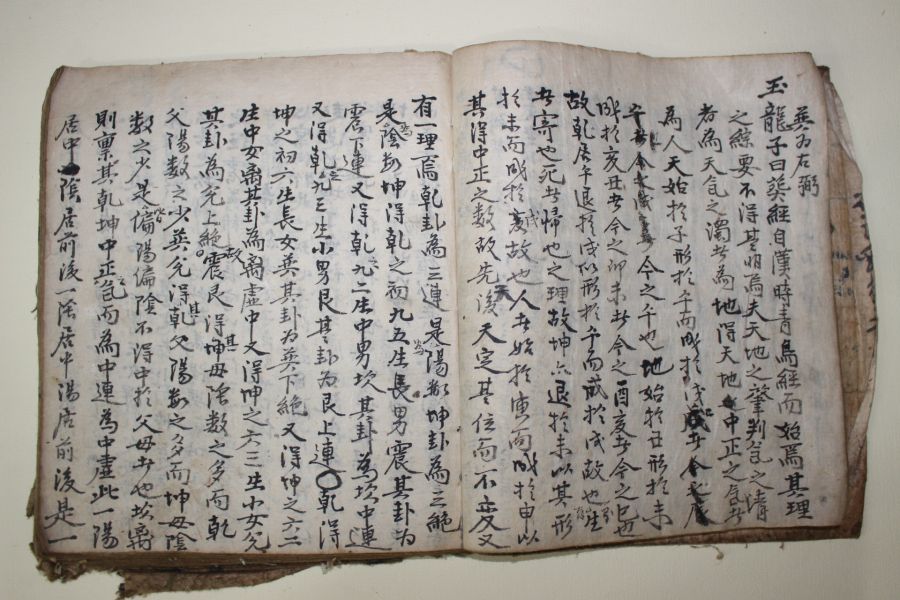 巽爲左弼
玉龍子曰葬經自漢時青烏經而始焉其理
之綜要不得其明焉夫天地之肇判意之清
者為天氣之濁者為地得天地之中正之氣者
為人天始於子形於午而成於戌
今之午也地始於丑形於未
成於亥丑者今之卯未者今之酉亥者今之巳也
故乾居午退於戌以形於午而成於戌故也生
者寄也死者歸也之理故坤六退於未以其形
於未而成於亥故也人者始於寅而成於申以
其得中正之數故先後天定其位而不变又
有一理焉乾卦為三連是為陽数坤卦為三絶
是為陰数坤得乾之初九五生長男震其卦為
震下連又得乾九二生中男坎其卦為坎中連
又得乾九三生小男艮其卦為艮上連○乾得
坤之初六生長女巽其卦為巽下絶又得坤之六二
生中女离其卦為离虚中又得坤之六三生小女兌
其卦為兌上絶故震艮得其坤母陰数之多而乾
父陽数之少巽兌得其乾父陽数之多而坤母陰
数之少是皆偏陽偏陰不得中於父母者也坎离
則稟其乾坤中正之氣而為中連為中虚此一陽
居中陰居前後一陰居中陽居前後是一